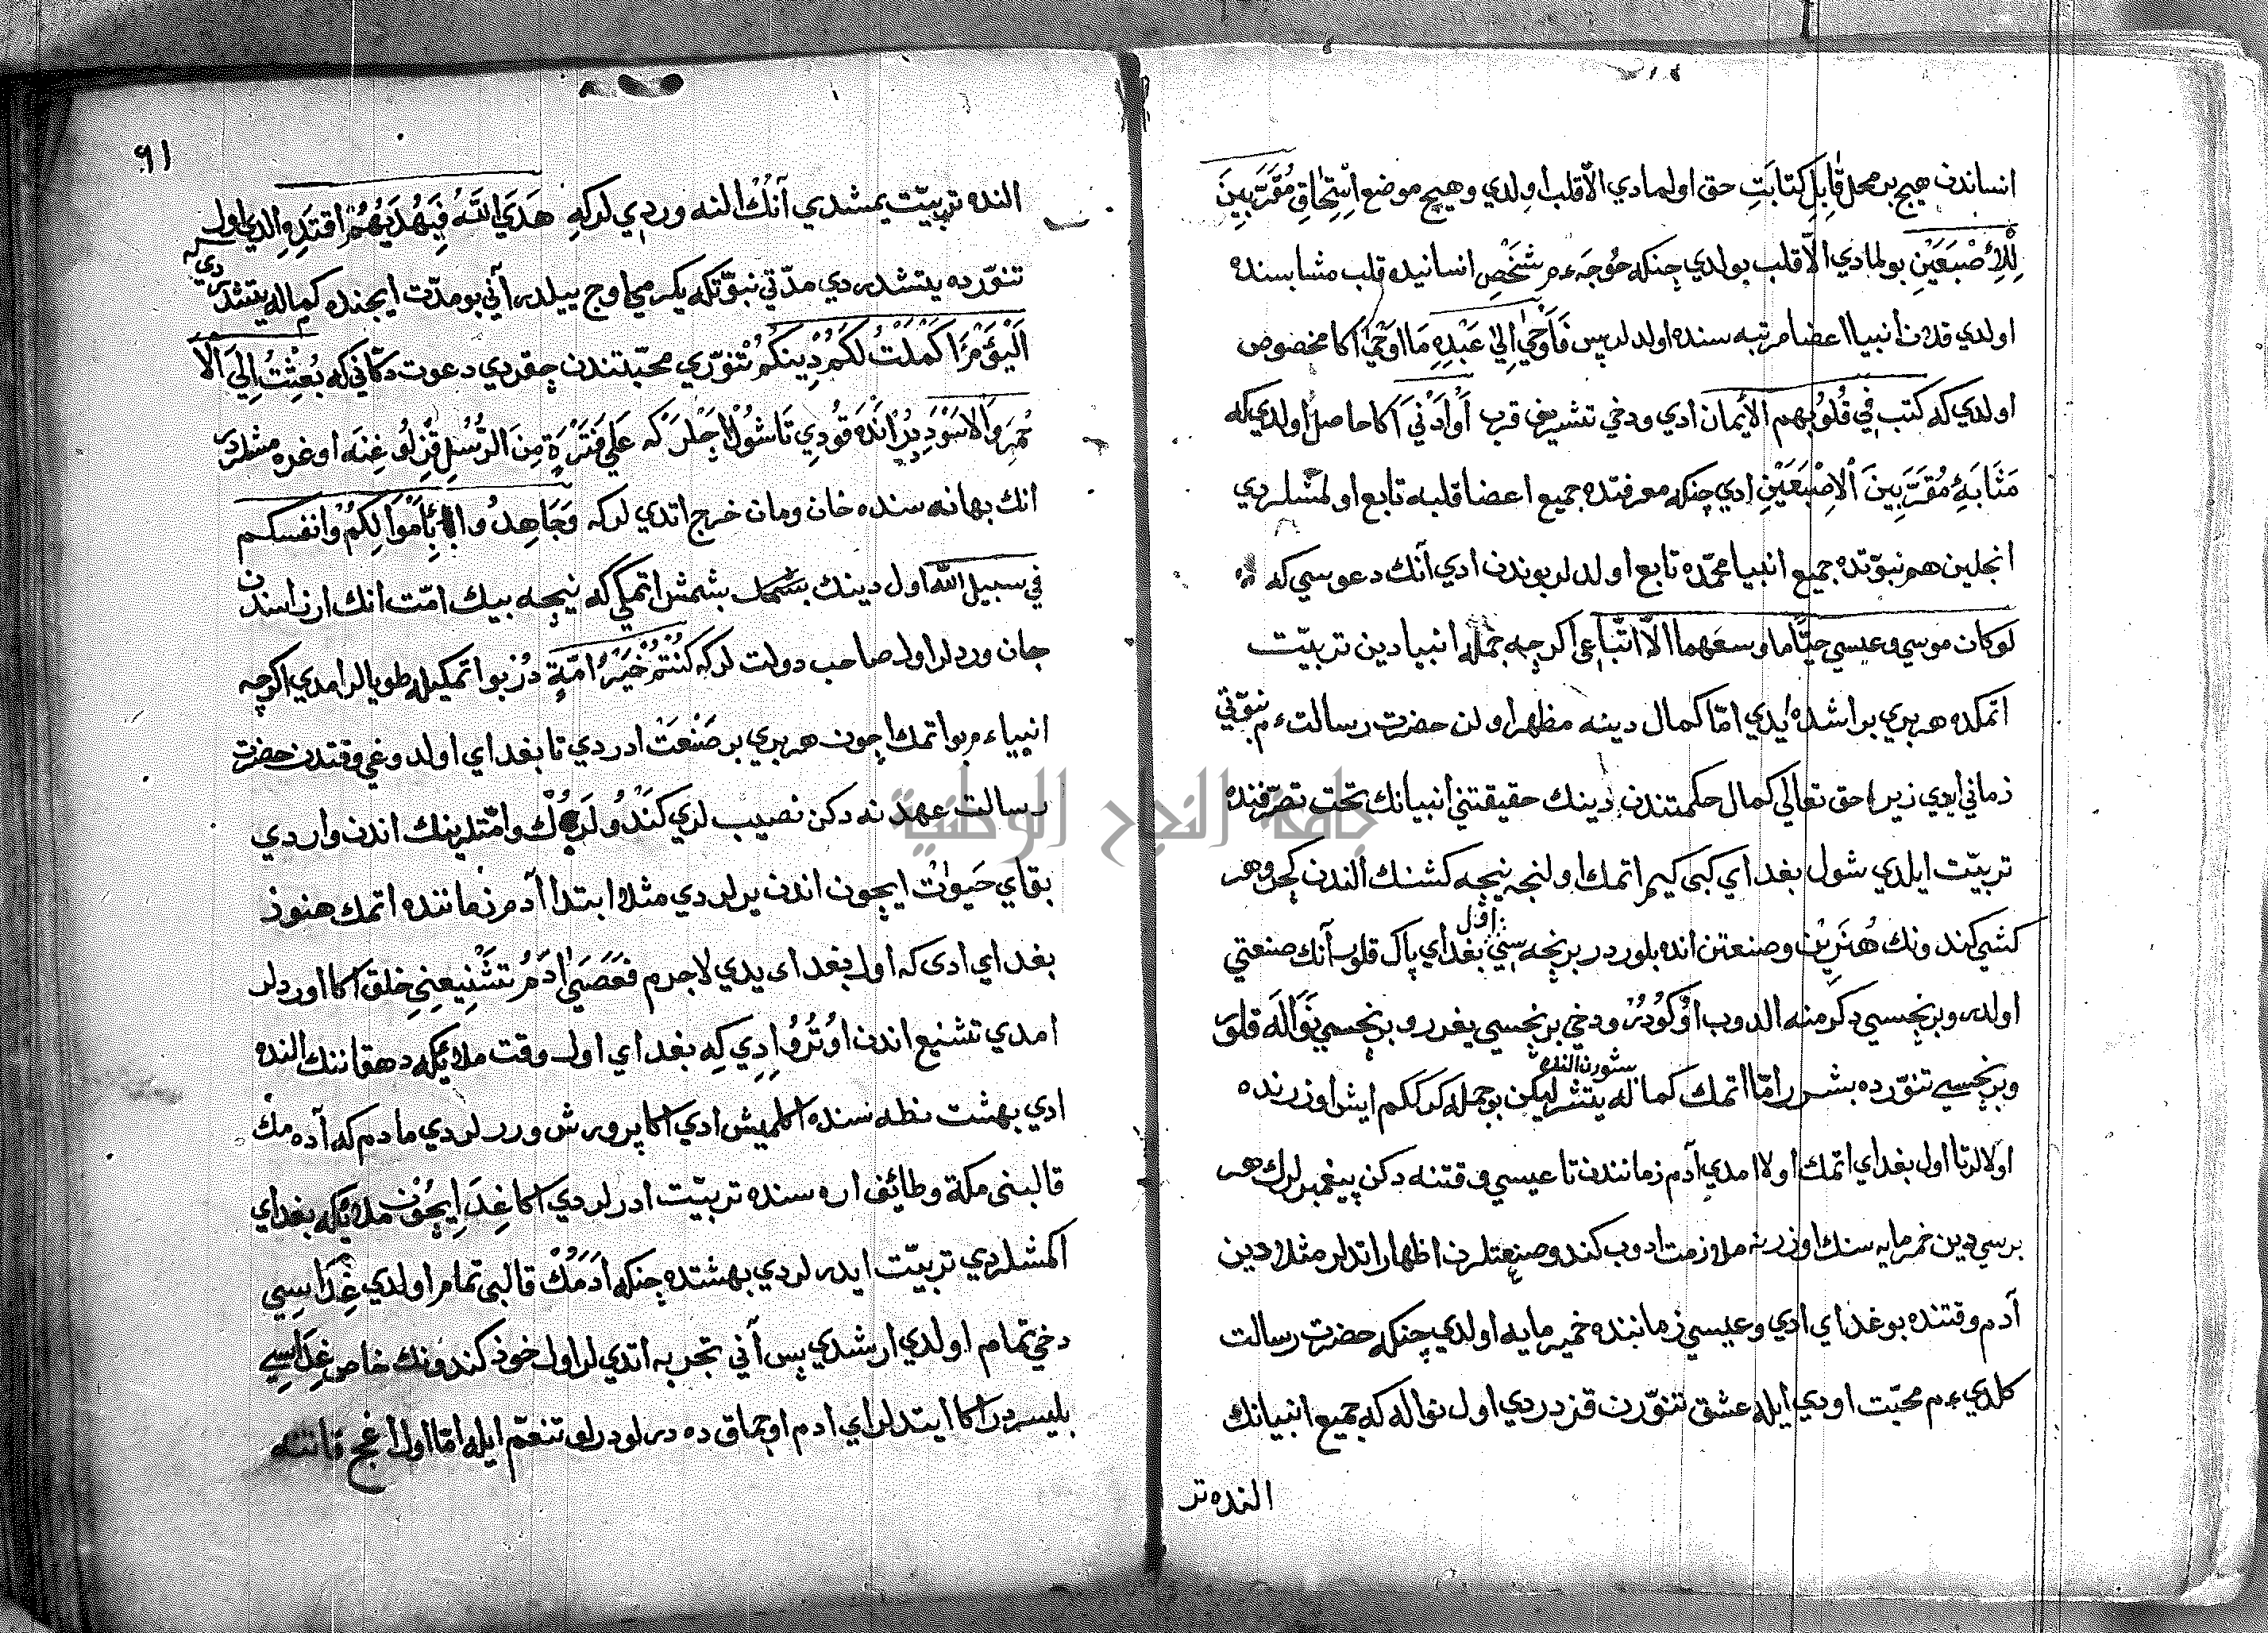 انساندن هیچ بر محل قابل کتابت حق اولمادي الّا قلب اولدي وهیچ موضع استحاق مُقَرَّبین
لِلْاِصْبَعَیْنِ بولمادي الّا قلب بولدي چنکه خوجه عم شخص انسانیده قلب مشابسنده
اولدي قلان انبیا اعضا مرتبه سنده اولدلر پس فَاَوْحٰي اِلٰي عَبْدِهِ مَا اَوْحٰي اکا مخصوص
اولدي که کتب في قُلُوبهم الأیمان ادي ودخي تشریفي قرب اَوْ اَدْنٰي اکا حاصل اولدي که
مَثَابَهٔ مُقَرَّبِینَ الْاِصْبَعَیْنِ ادي چنکه معرفتده جمیع اعضا قلبه تابع اولمشلردي
انجلین هم نبوّتده جمیع انبیا محمّده تابع اولدلر بوندن ادي آنك دعوسي که
لو کان موسي وعیسي حیّاً ما وسعهما الّا اتّباعي اکرچه جمله انبیا دین تربیّت
اتمکده هر بري بر اشده ایدي امّا کمال دینه مظهر اولن حضرت رسالت عم نبوّتي
زماني ایدي زیرا حق تعالي کمال حکمتندن دینك حقیقتني انبیانك تحت تصرّفنده
تربیّت ایلدي شول بغداي کبي کیم اتمك اولنجه نیچه کشنك الندن کچر وهر
کشي کندونك هُنَرِیْن وصنعتن انده بلورد ر برنچه سي اوّل بغداي پاك قلور آنك صنعتي
اولدر وبرنچسي دکرمنه الدوب اوکودُر ودخي برنچسي یغرر وبرنچسي نَوَالَه قلور
وبرنچسي تنوّرده بشرر امّا اتمك کماله یتشر بشورن النده لیکن بو جمله کرککم ایش اوزرنده
اولالر تا اول بغداي اتمك اولا امدي آدم زمانندن تا عیسي وقتنه دکن پیغمبرلرك هر
برسي دین خمرمایه سنك اوزرینه ملازمت ادوب کندو صنعتلرن اظهار اتدلر مثلا دین
آدم وقتنده بوغداي ادي وعیسي زماننده خمیرمایه اولدي چنکه حضرت رسالت
کلدي عم محبّت اودي ایله عشق تنوّرن قزدردي اول نواله که جمیع انبیانك
النده تر
٩١
النده تربیّت یمشدي آنك النه ورديلر که هَدَي اللّٰهُ فَبِهُدَیٰهُمُ اقْتَدِهِ الدي اول
تنوّرده یتشدردي مدّتي نبوّتکه یکرمي اوچ ییلدر آني بو مدّت ایچنده کماله یتشدردي که
اَلْیَوْمَ اَکْمَلْتُ لَکُمْ دِینَکُمْ تنوّري محبّتندن چقردي دعوت دکّاني که بُعِثْتُ اِلَي الْاَ
حْمَرِ وَالْاَسْوَدِ دِرْ اَنْدَه قُودِي تا شول اچلر که عَلٰي فَتْرَةٍ مِنَ الرُّسُلِ قزلو غنه اوغرهمشلردر
انك بهانه سنده خان ومان خرج اتديلر که وَجَاهِدُوا بِاَمْوَالِکُمْ وانفسکم
في سبیل الله اول دینك بشمش اتمکي که نیجه بیك امّت انك ارزاسندن
جان وردلر اول صاحب دولت لر که کُنْتُمْ خَیْرَ اُمَّةٍ دُرْ بو اتمکیله طویالر امدي اکرچه
انبیاء عم بو اتمك اچون هر بري بر صَنْعَتْ ادردي تا بغداي اولدوغي وقتدن حضرت
رسالت عهدنه دکن نصیب لري کَنْدُولَرُكْ وامّتلرینك اندن واردي
بقاي حَیوٰتْ ایچون اندن یرلردي مثلا ابتدا آدم زماننده اتمك هنوز
بغداي ادي که اول بغداي یدي لا جرم فَعَصٰي اٰدَمُ تَشْنِیعِنِي خلق اکا اوردلر
امدي تشنیع اندن اوتُرُو اِدِي کِه بغداي اول وقت ملائکه دهقاننك النده
ادي بهشت نطه سنده اکلمیش ادي اکا پرورش وررلردي مادم که آدمك
قالبني مکّة وطائف اره سنده تربیّت ادرلردي اکا غِدَا اِیچُون ملائکه بغداي
اکمشلردي تربیّت ایدرلردي بهشتده چنکه اٰدَمُكْ قالبي تمام اولدي غِدَاسِي
دخي تمام اولدي ارشدي پس آني تجربه اتديلر اول خوذ کندونك خاص غِدَاسِي
بلیسردر اکا ایتدلر اي ادم اوچماق ده درلو درلو تنعّم ایله امّا اول اغج قاتنه